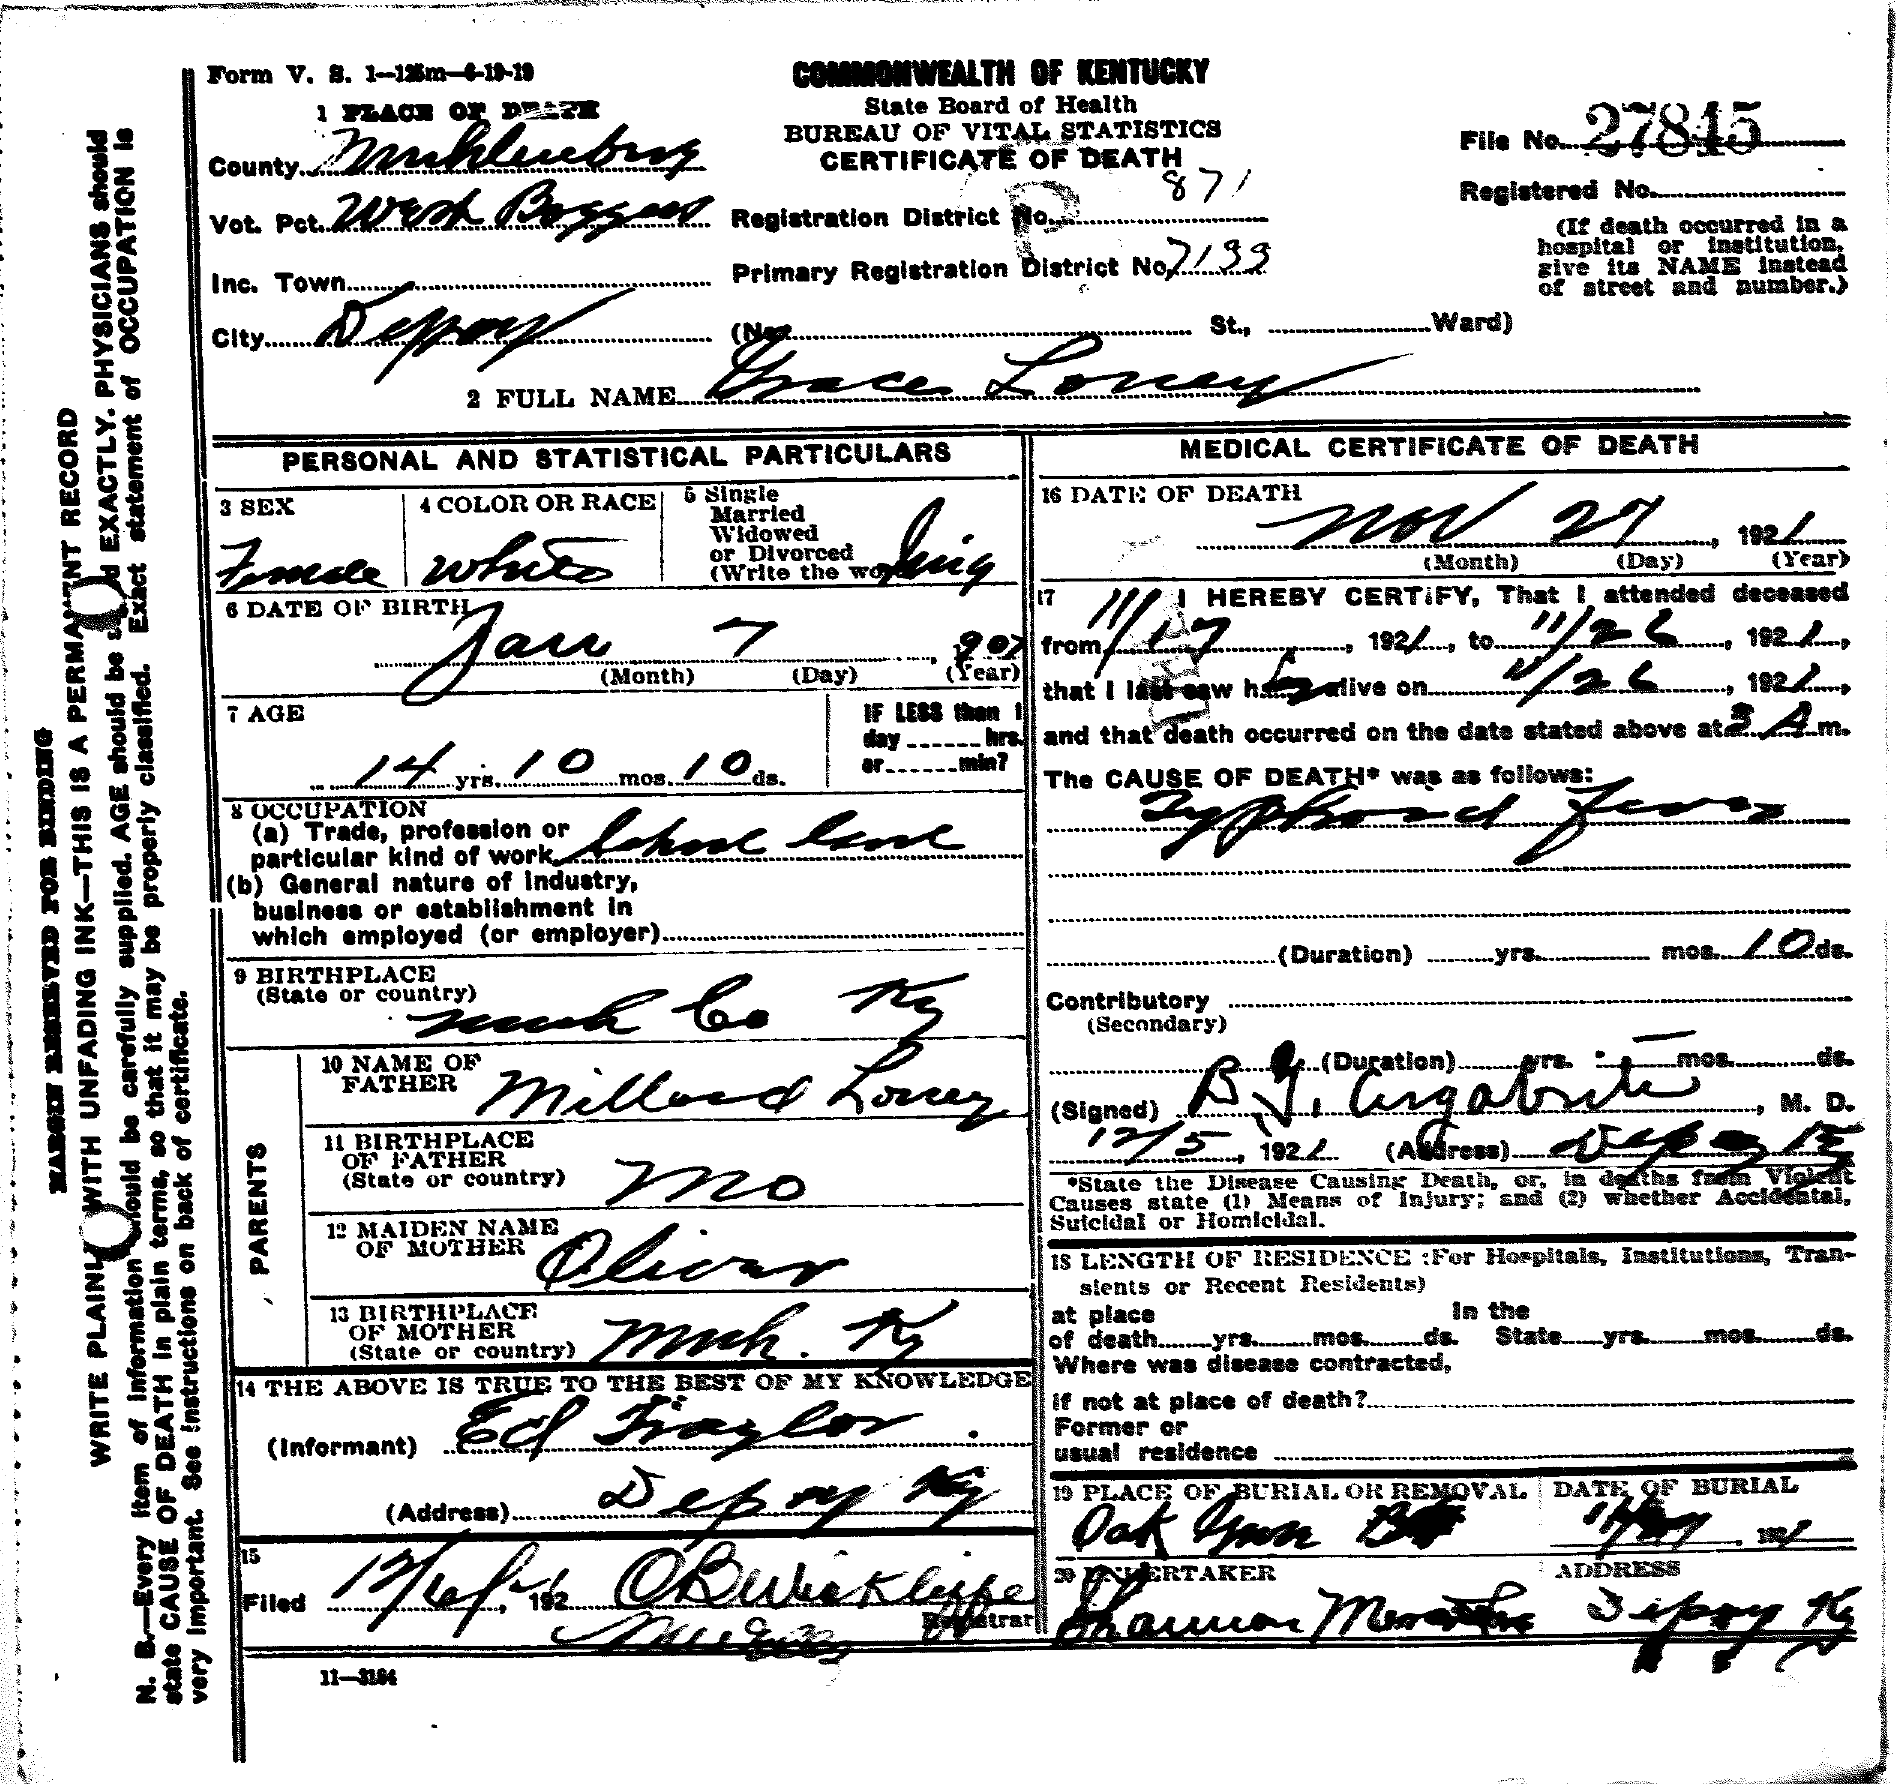 Form V. S. 1—125m—6-19-19
COMMONWEALTH OF KENTUCKY
State Board of Health
BUREAU OF VITAL STATISTICS
CERTIFICATE OF DEATH
1 PLACE OF DEATH
County Muhlenburg
Vot. Pct. West Boggess
Inc. Town
City Depoy
Registration District No. 871
Primary Registration District No. 7199
(No. St., Ward)
File No. 27845
Registered No.
(If death occurred in a
hospital or institution,
give its NAME instead
of street and number.)
2 FULL NAME Grace Loney
PERSONAL AND STATISTICAL PARTICULARS
3 SEX
Female
4 COLOR OR RACE
White
5 Single
Married
Widowed
or Divorced
(Write the wo
Sing
6 DATE OF BIRTH
Jan 7, 907
(Month) (Day) (Year)
7 AGE
14 yrs. 10 mos. 10 ds.
IF LESS than 1
day hrs.
or min?
8 OCCUPATION
(a) Trade, profession or
particular kind of work
School
(b) General nature of industry,
business or establishment in
which employed (or employer)
9 BIRTHPLACE
(State or country)
Muh Co Ky
PARENTS
10 NAME OF
FATHER
Millard Loney
11 BIRTHPLACE
OF FATHER
(State or country)
Mo
12 MAIDEN NAME
OF MOTHER
Oliver
13 BIRTHPLACE
OF MOTHER
(State or country)
Muh. Ky
14 THE ABOVE IS TRUE TO THE BEST OF MY KNOWLEDGE
(Informant) Ed Traylor
(Address) Depoy Ky
15
Filed 12/6/, 1921 OB Wickliffe
Registrar
11—3184
MEDICAL CERTIFICATE OF DEATH
16 DATE OF DEATH
Nov 27, 1921
(Month) (Day) (Year)
17 I HEREBY CERTIFY, That I attended deceased
from 11/17, 1921, to 11/26, 1921,
that I last saw her alive on 11/26, 1921,
and that death occurred on the date stated above at 3 A m.
The CAUSE OF DEATH* was as follows:
Typhoid Fever
(Duration) yrs. mos. 10 ds.
Contributory
(Secondary)
(Duration) yrs. mos. ds.
(Signed) B. G. Argabrite, M. D.
12/5, 1921 (Address) Depoy Ky
*State the Disease Causing Death, or, in deaths from Violent
Causes state (1) Means of Injury; and (2) whether Accidental,
Suicidal or Homicidal.
18 LENGTH OF RESIDENCE (For Hospitals, Institutions, Tran-
sients or Recent Residents)
at place In the
of death yrs. mos. ds. State yrs. mos. ds.
Where was disease contracted,
if not at place of death?
Former or
usual residence
19 PLACE OF BURIAL OR REMOVAL
Oak Grove
DATE OF BURIAL
1921
20 UNDERTAKER
Shannon
ADDRESS
Depoy Ky
MARGIN RESERVED FOR BINDING
WRITE PLAINLY WITH UNFADING INK—THIS IS A PERMANENT RECORD
N. B.—Every item of information should be carefully supplied. AGE should be stated EXACTLY. PHYSICIANS should
state CAUSE OF DEATH in plain terms, so that it may be properly classified. Exact statement of OCCUPATION is
very important. See instructions on back of certificate.